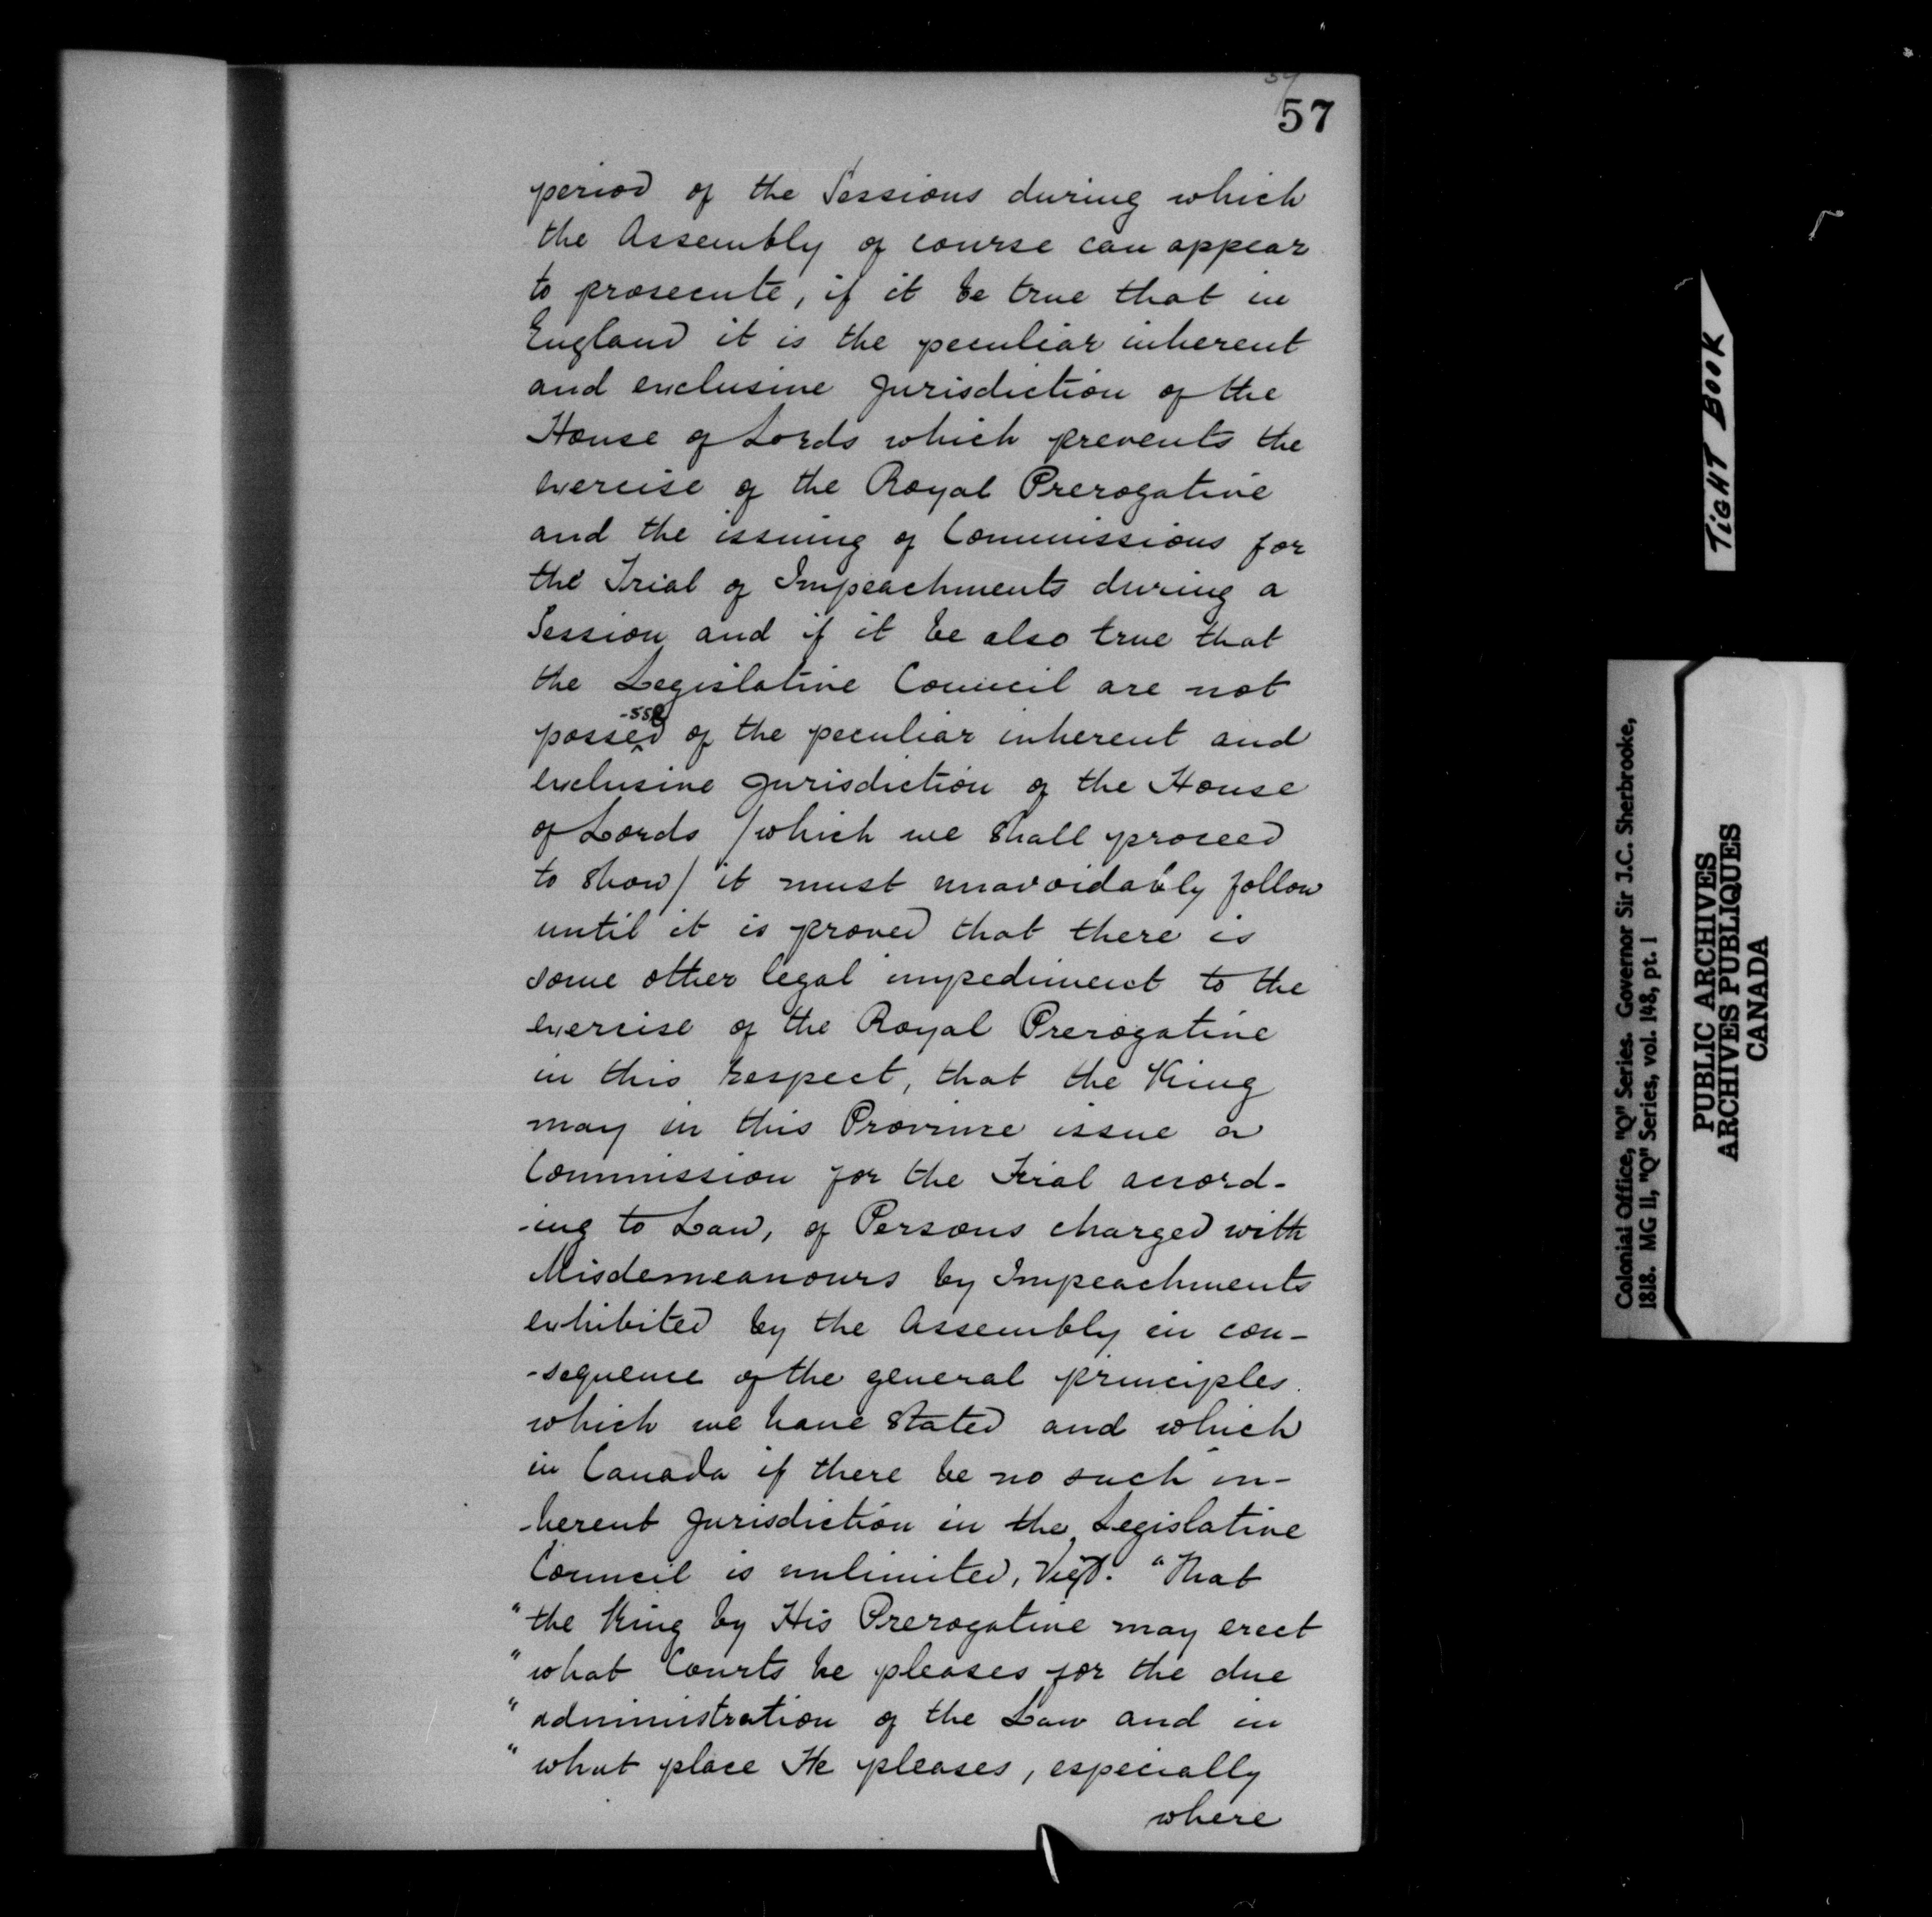 57
period of the Sessions during which
the Assembly of course can appear
to prosecute, if it be true that in
England it is the peculiar inherent
and exclusive jurisdiction of the
House of Lords which prevents the
exercise of the Royal Prerogative
and the issuing of Commissions for
the Trial of Impeachments during a
Session and if it be also true that
the Legislative Council are not
-sse
possed of the peculiar inherent and
exclusive jurisdiction of the House
of Lords /which we shall proceed
to show/ it must unavoidably follow
until it is proved that there is
some other legal impediment to the
exercise of the Royal Prerogative
in this respect, that the King
may in this Province issue a
Commission for the Trial accord-
-ing to Law, of Persons charged with
Misdemeanours by Impeachments
exhibited by the Assembly in con-
-sequence of the general principles.
which we have stated and which
in Canada if there be no such in-
-herent jurisdiction in the Legislative
Council is unlimited, Vizt. "That
"the King by His Prerogative may erect
"what Courts he pleases for the due
"administration of the Law and in
"what place He pleases, especially
where
TIGHT BOOK
Colonial Office, "Q" Series. Governor Sir J.C. Sherbrooke,
1818. MG 11, "Q" Series, vol. 148, pt. 1
PUBLIC ARCHIVES
ARCHIVES PUBLIQUES
CANADA